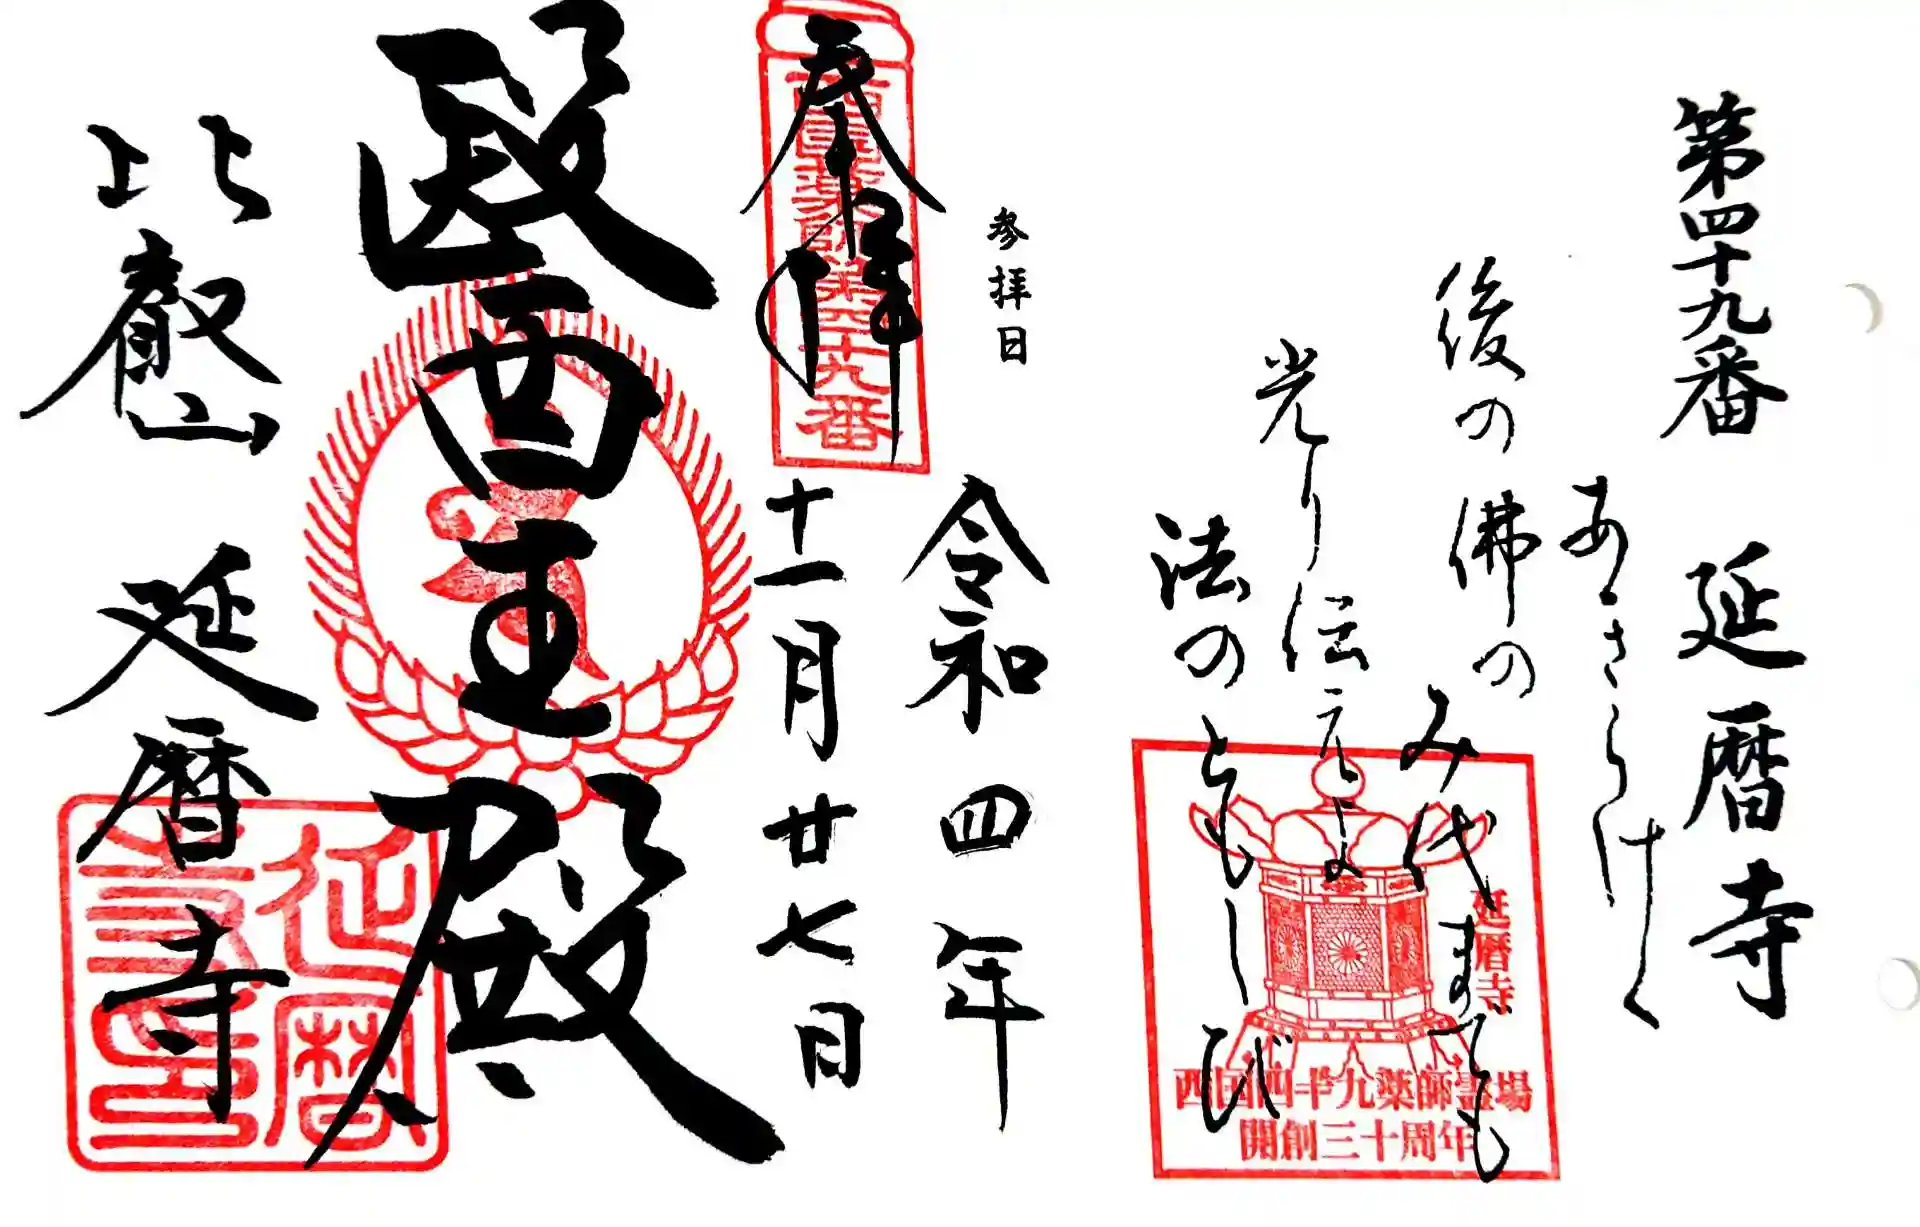 第四十九番 延暦寺
あきらけく
後の佛の
み代までも
光り伝えよ
法のともしび
延暦寺
西国四十九薬師霊場
開創三十周年
参拝日
令和四年
十一月廿七日
奉拝
西國薬師第四十九番
醫王殿
比叡山 延暦寺
延暦
寺印